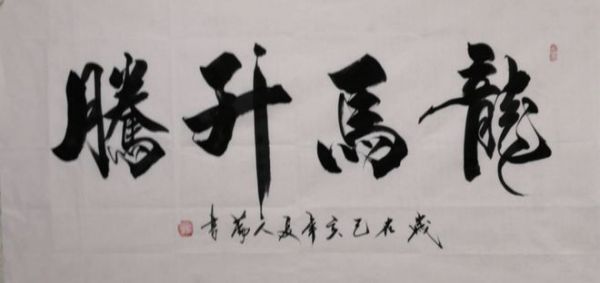 龍馬升騰
歲在己亥年夏人篇書